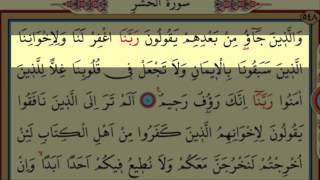 سورة الحشر
٥٤٨
وَالَّذِينَ جَاؤُ مِنْ بَعْدِهِمْ يَقُولُونَ رَبَّنَا اغْفِرْ لَنَا وَلِاِخْوَانِنَا
الَّذِينَ سَبَقُونَا بِالْاِيمَانِ وَلَا تَجْعَلْ فِي قُلُوبِنَا غِلًّا لِلَّذِينَ
اٰمَنُوا رَبَّنَا اِنَّكَ رَؤُفٌ رَحِيمٌ اَلَمْ تَرَ اِلَى الَّذِينَ نَافَقُوا
يَقُولُونَ لِاِخْوَانِهِمُ الَّذِينَ كَفَرُوا مِنْ اَهْلِ الْكِتَابِ لَئِنْ
اُخْرِجْتُمْ لَنَخْرُجَنَّ مَعَكُمْ وَلَا نُطِيعُ فِيكُمْ اَحَدًا اَبَدًا وَاِنْ